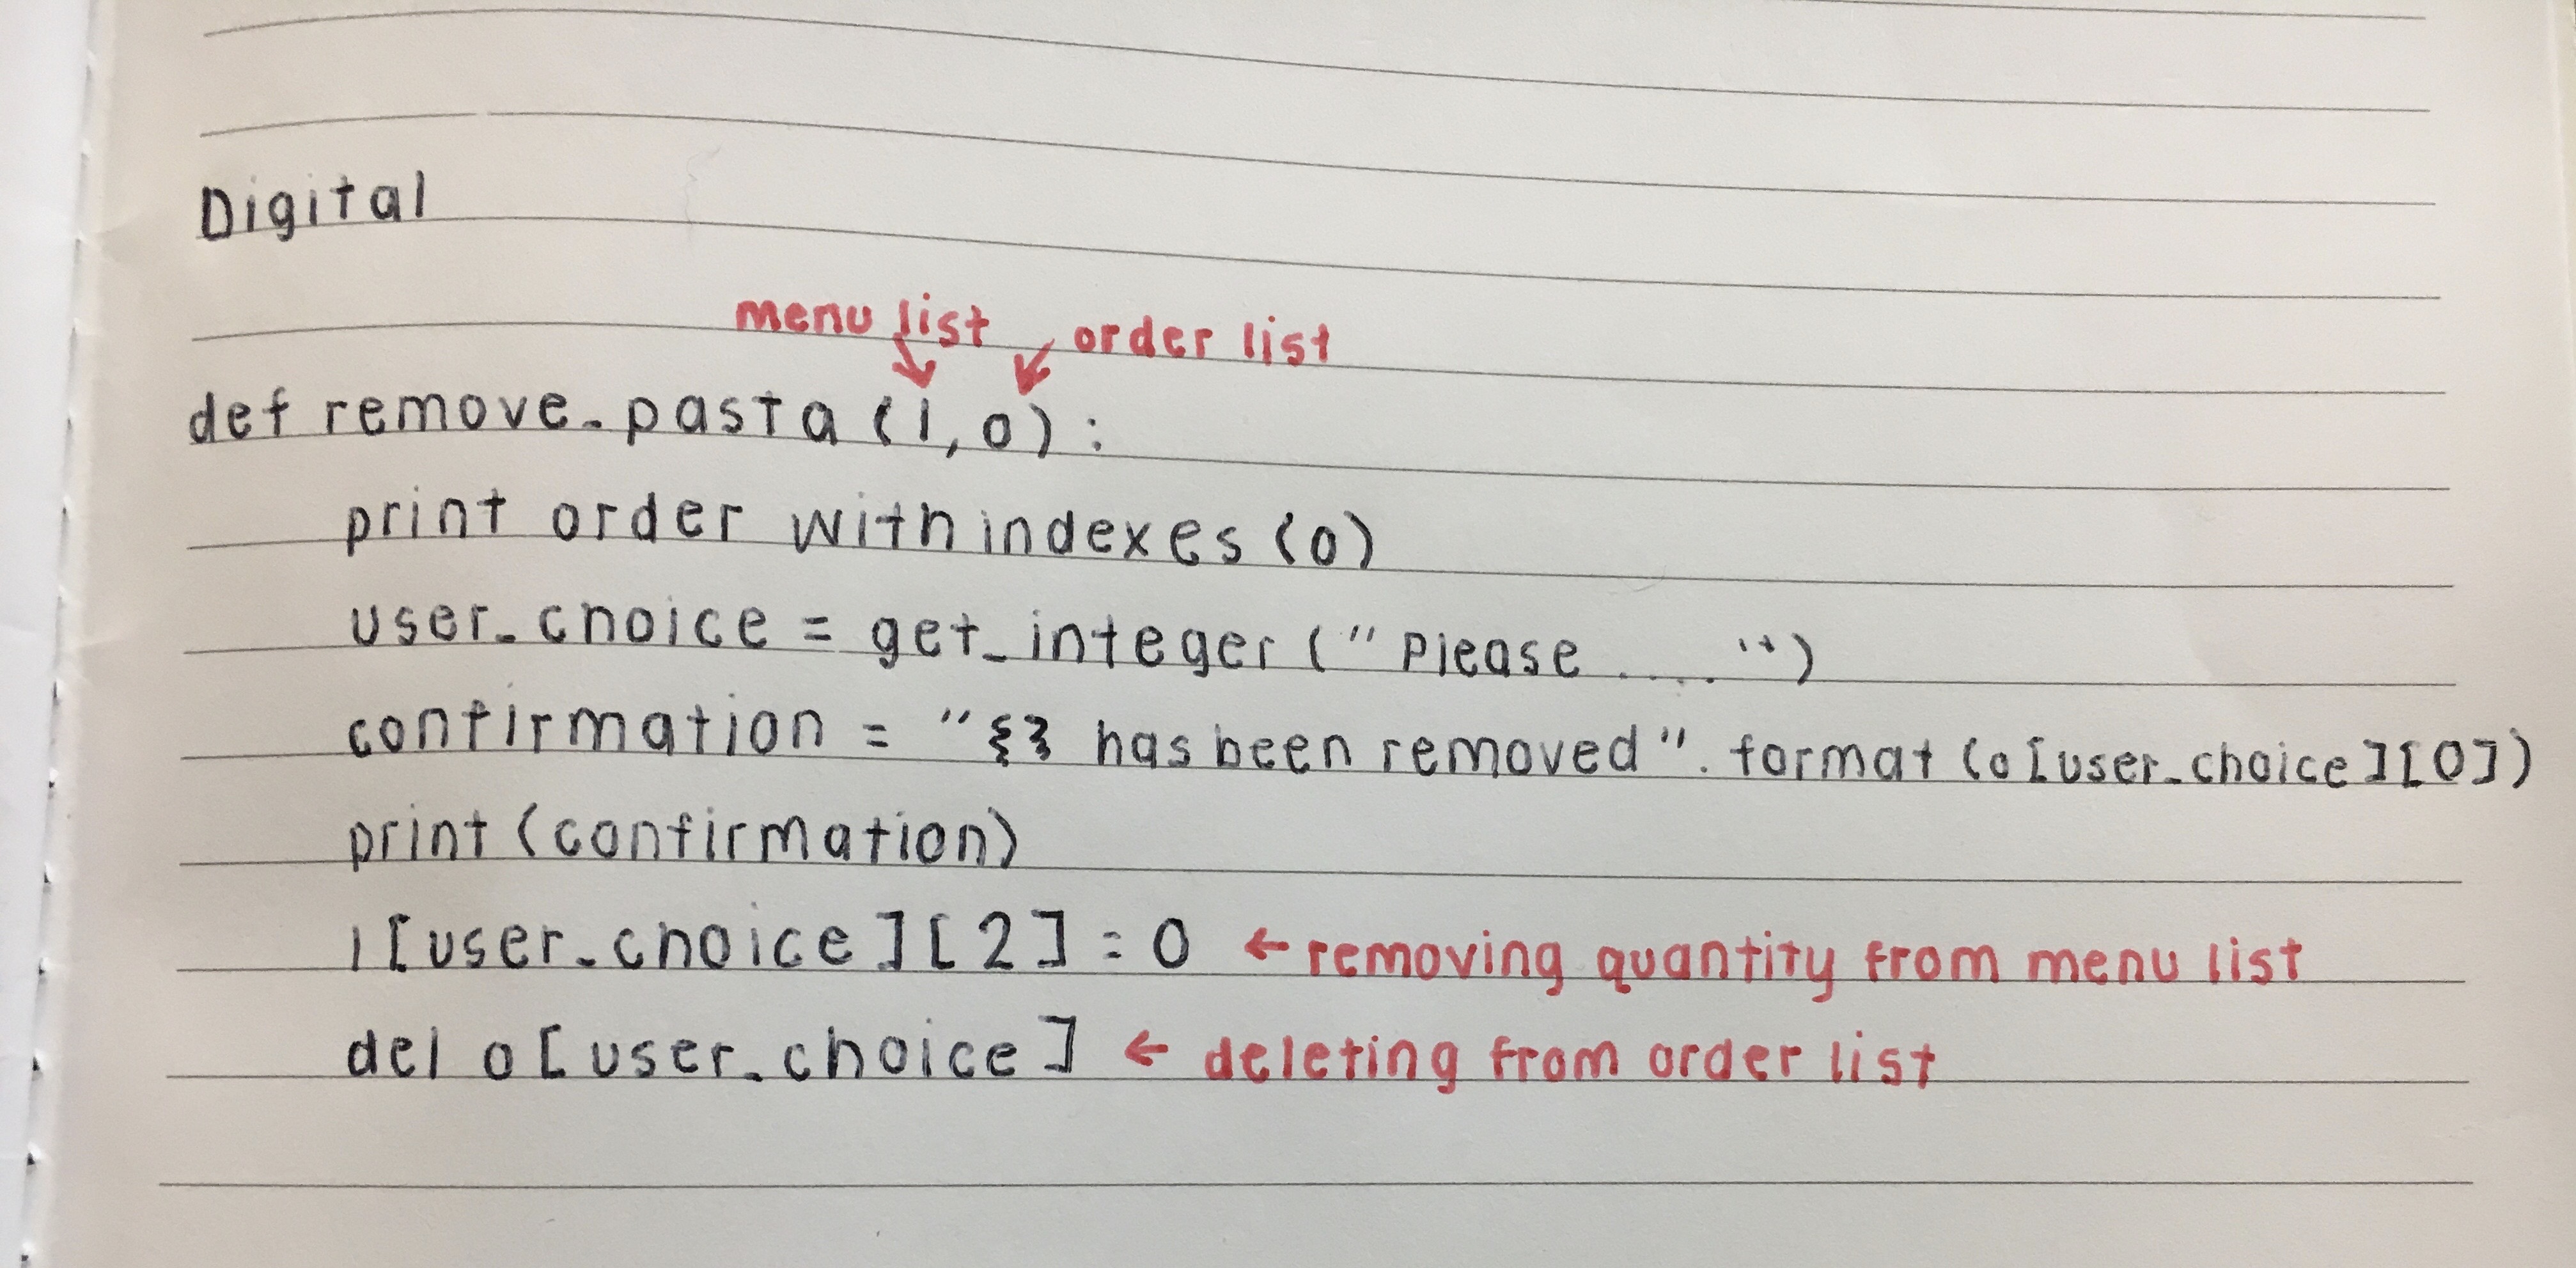 Digital
menu list order list
def remove_pasta (l, o) :
print order with indexes (o)
user_choice = get_integer ("Please ..... ")
confirmation = "{} has been removed". format (o[user_choice][0])
print (confirmation)
l[user_choice][2] = 0 ← removing quantity from menu list
del o[user_choice] ← deleting from order list